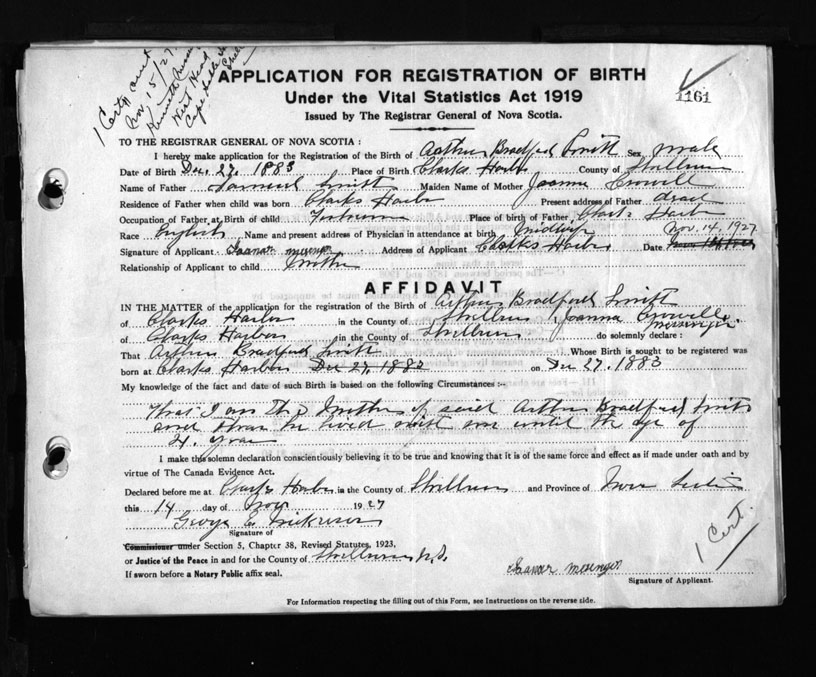 1 Cert
Nov. 15/27
West Head
Cape Sable
APPLICATION FOR REGISTRATION OF BIRTH
1161
Under the Vital Statistics Act 1919
Issued by The Registrar General of Nova Scotia.
TO THE REGISTRAR GENERAL OF NOVA SCOTIA :
I hereby make application for the Registration of the Birth of Arthur Bradford Smith Sex male
Date of Birth Dec. 27, 1883 Place of Birth Clarks Harbor County of Shelburne
Name of Father Smith Maiden Name of Mother Joanna Crowell
Residence of Father when child was born Clarks Harbor Present address of Father dead
Occupation of Father at Birth of child Fisherman Place of birth of Father Clark's Harbor
Race English Name and present address of Physician in attendance at birth midwife Nov. 14, 1927
Signature of Applicant Address of Applicant Clarks Harbor Date
Relationship of Applicant to child Mother
AFFIDAVIT
IN THE MATTER of the application for the registration of the Birth of Arthur Bradford Smith
of Clarks Harbor in the County of Shelburne Joanna Crowell
of Clarks Harbor in the County of Shelburne Messenger do solemnly declare :
That Arthur Bradford Smith Whose Birth is sought to be registered was
born at Clarks Harbor Dec 27, 1883 on Dec 27. 1883
My knowledge of the fact and date of such Birth is based on the following Circumstances :-
that I am the Mother of said Arthur Bradford Smith
and he lived with me until the age of
21. years
I make this solemn declaration conscientiously believing it to be true and knowing that it is of the same force and effect as if made under oath and by
virtue of The Canada Evidence Act.
Declared before me at Clarks Harbor in the County of Shelburne and Province of Nova Scotia
this 14 day of Nov 1927
George E Nickerson
Signature of
Commissioner under Section 5, Chapter 38, Revised Statutes, 1923,
or Justice of the Peace in and for the County of Shelburne N.S.
1 Cert.
If sworn before a Notary Public affix seal.
Signature of Applicant.
For Information respecting the filling out of this Form, see Instructions on the reverse side.